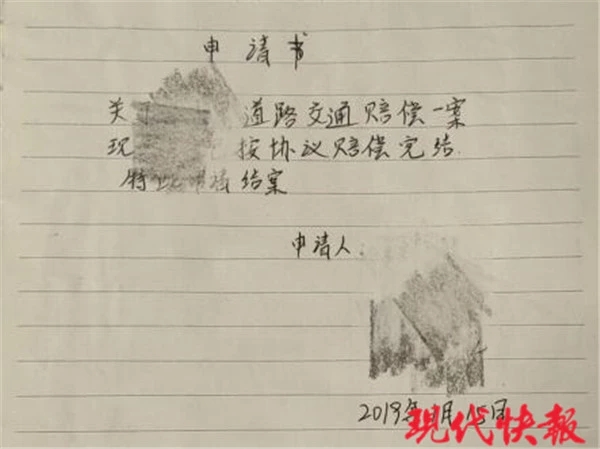 申请书
关 道路交通赔偿一案
现 已按协议赔偿完结.
特此申请结案
申请人:
2019年 月15日
现代快报